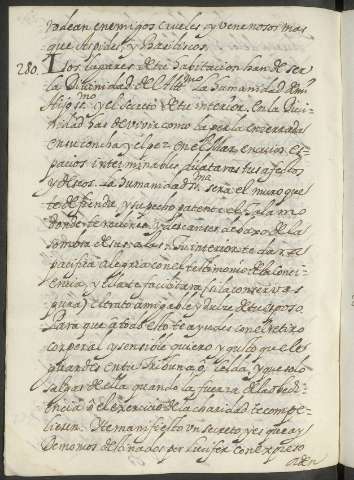 rodean enemigos crueles, y venenosos mas
que aspides, y basiliscos.
280. Los lugares de tu habitacion han de ser
la Divinidad de el Altmo. la humanidad de mi
Hijo Smo. y el secreto de tu interior. En la Divi-
nidad has de vivir como la perla encerrada
en su concha y el pez en el Mar, en cuios es-
pacios interminables dilataras tus afectos
y deseos. La humanidad sma. será el muro que
te defienda y su pecho patente el talamo
donde te reclines, y descanses debaxo de la
sombra de sus alas. tu interior te dará
pacifica alegria con el testimonio de la Concien-
cia, y ella te facilitará (si la conservas
pura) el trato amigable y dulce de tu esposo.
Para que à todo esto te ayudes con el retiro
corporal y sensible quiero, y gusto que le
guardes en tu tribuna, ò, celda, y que solo
salgas de ella quando la fuerza de la obedi-
encia ò el exercicio de la charidad te compe-
lieren. Y te manifiesto un secreto, y es que ay
Demonios destinados por Lucifer con expreso
orden